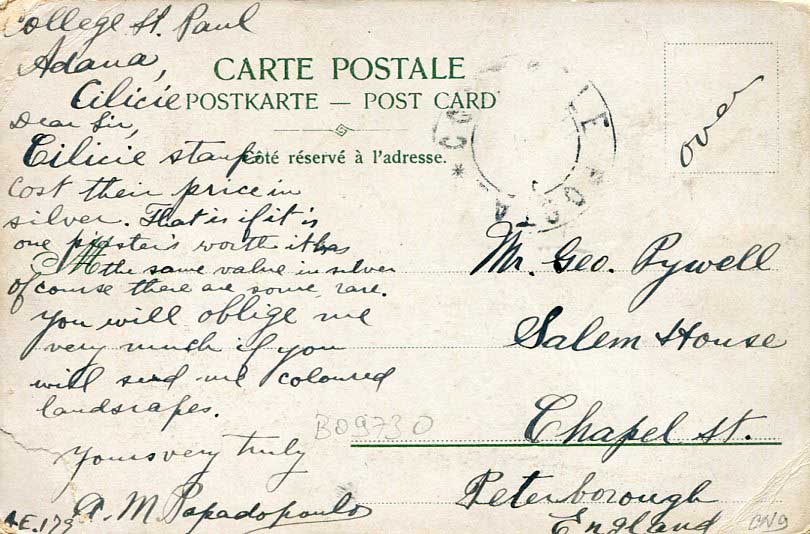 College St. Paul
Adana,
Cilicie
Dear Sir,
Cilicie stamps
cost their price in
silver. That is if it is
one piaster's worth it has
the same value in silver
of course there are some rare.
You will oblige me
very much if you
will send me coloured
landscapes.
Yours very truly
A. M. Papadopoulo
A.E. 179
CARTE POSTALE
POSTKARTE — POST CARD
Côté réservé à l'adresse.
over
Mr. Geo. Pywell
Salem House
Chapel St.
Peterborough
England
B09730
CN9